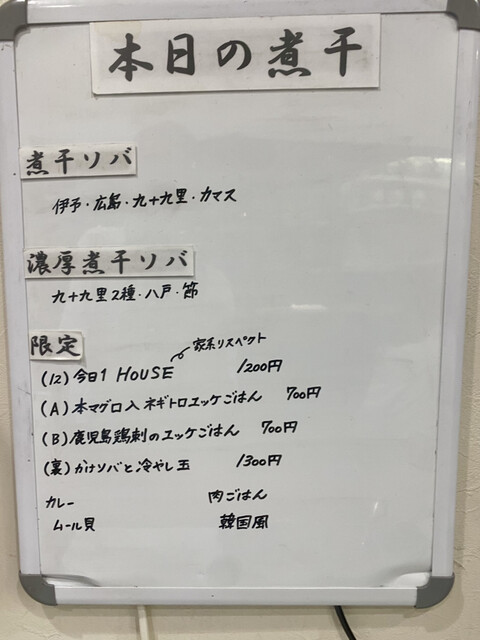 本日の煮干
煮干ソバ
伊予・広島・九十九里・カマス
濃厚煮干ソバ
九十九里2種・八戸・節
限定
家系リスペクト
(12) 今日1 HOUSE 1200円
(A) 本マグロ入ネギトロユッケごはん 700円
(B) 鹿児島鶏刺のユッケごはん 700円
(裏) かけソバと冷やし玉 1300円
カレー 肉ごはん
ムール貝 韓国風